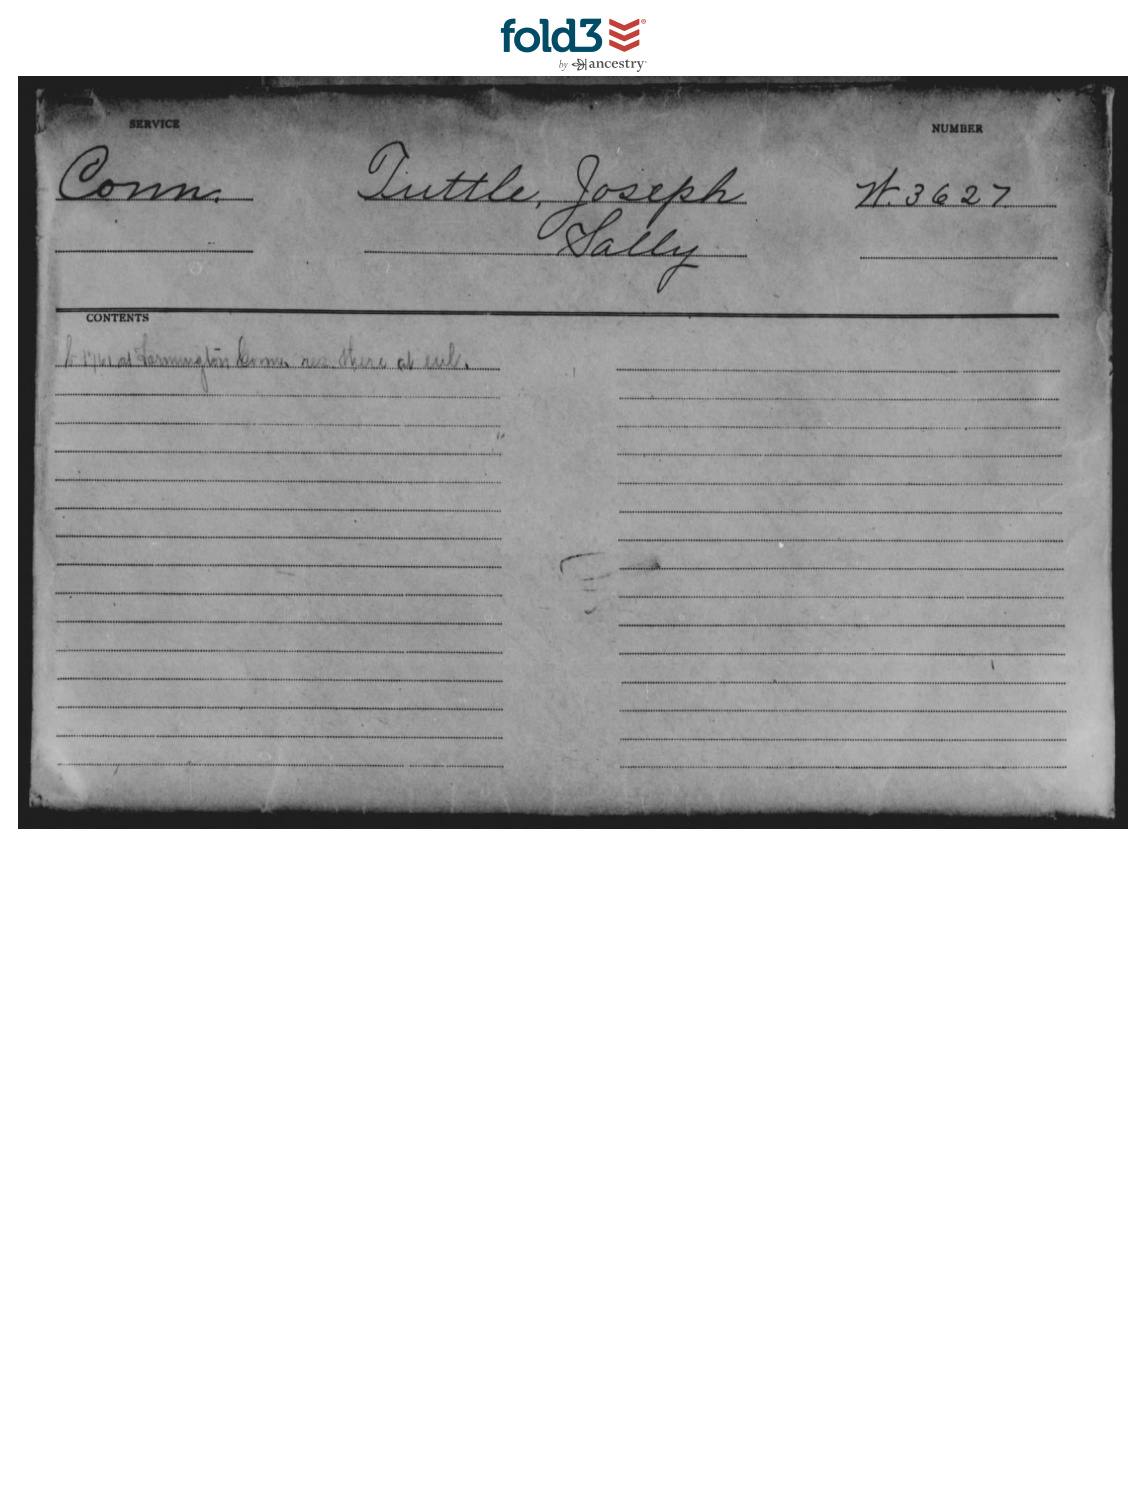 fold3
by ancestry
SERVICE
NUMBER
Conn. Tuttle, Joseph W. 3627
Sally
CONTENTS
b 1761 at Farmington Conn. res. there at enl.